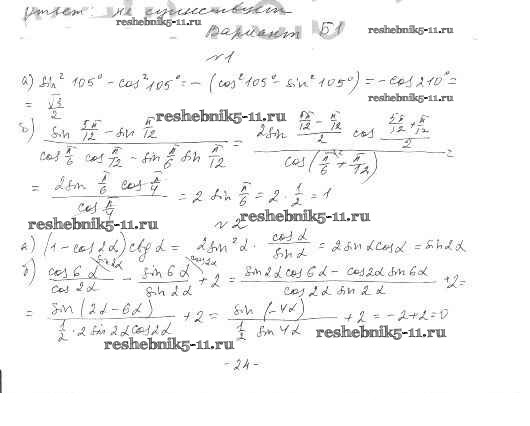 Ответ: не существует
reshebnik5-11.ru
reshebnik5-11.ru
Вариант Б1
№1
reshebnik5-11.ru
а) sin² 105° - cos² 105° = - (cos² 105° - sin² 105°) = - cos 210° =
= √3/2
reshebnik5-11.ru
reshebnik5-11.ru
б) (sin 5π/12 - sin π/12)/(cos π/6 cos π/12 - sin π/6 sin π/12) = (2 sin (5π/12 - π/12)/2 cos (5π/12 + π/12)/2)/(cos(π/6 + π/12)) =
= (2 sin π/6 cos π/4)/(cos π/4) = 2 sin π/6 = 2 · 1/2 = 1
reshebnik5-11.ru
reshebnik5-11.ru
№2
а) (1 - cos 2α) ctg α = 2 sin² α · cos α/sin α = 2 sin α cos α = sin 2α
б) cos 6α/cos 2α - sin 6α/sin 2α + 2 = (sin 2α cos 6α - cos 2α sin 6α)/(cos 2α sin 2α) + 2 =
= sin (2α - 6α)/(1/2 · 2 sin 2α cos 2α) + 2 = sin (-4α)/(1/2 sin 4α) + 2 = -2 + 2 = 0
reshebnik5-11.ru
reshebnik5-11.ru
- 24 -